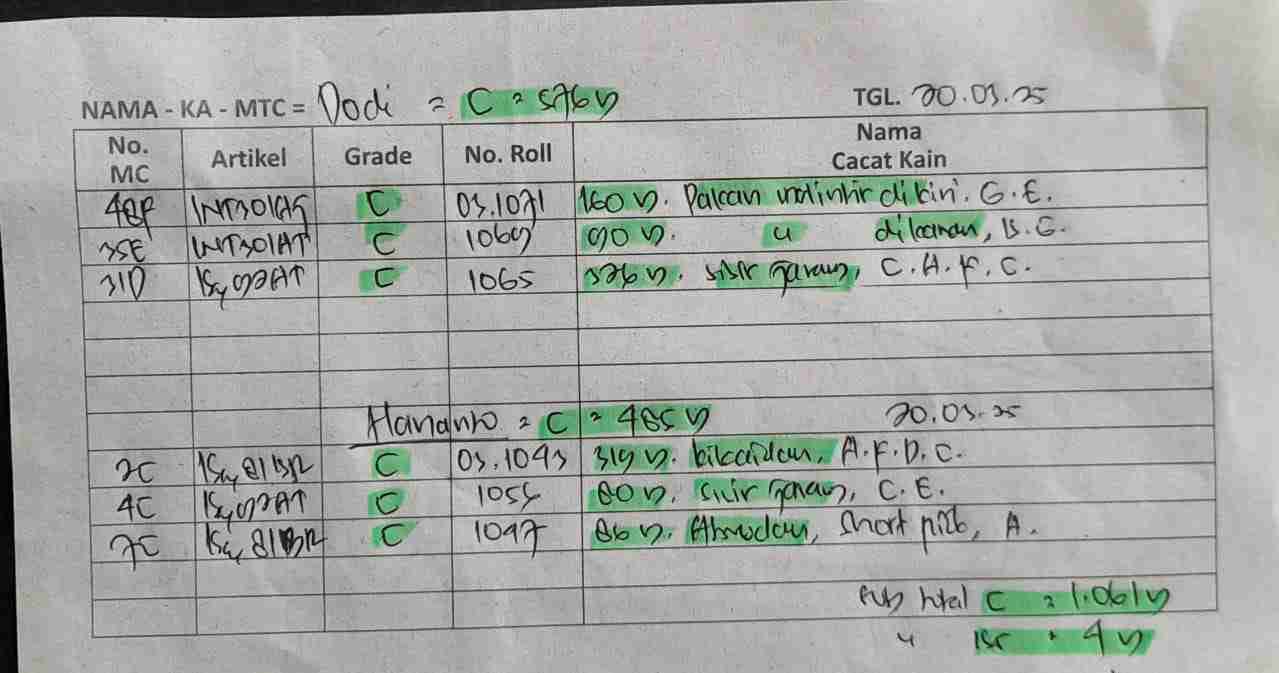 NAMA - KA - MTC = Dodi = C = 576 y TGL. 20.03.25
No. MC Artikel Grade No. Roll Nama Cacat Kain
48F INT301AS C 03.1071 160 y. Pakan melintir dikiri. G.E.
35E INT301AT C 1069 90 y. " dikanan, B.G.
31D C 1065 326 y. sisir jarang, C.A.F.C.
Hananto = C = 485 y 20.03.25
2C C 03.1043 319 y. A.F.D.C.
4C C 1055 80 y. sisir jarang, C.E.
7C C 1047 86 y. short pick, A.
sub total C = 1.061 y
" BS = 4 y